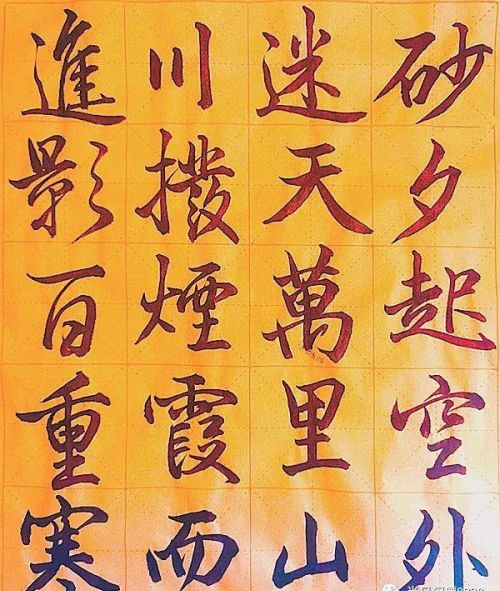 砂夕起空外
迷天萬里山
川撥煙霞而
進影百重寒